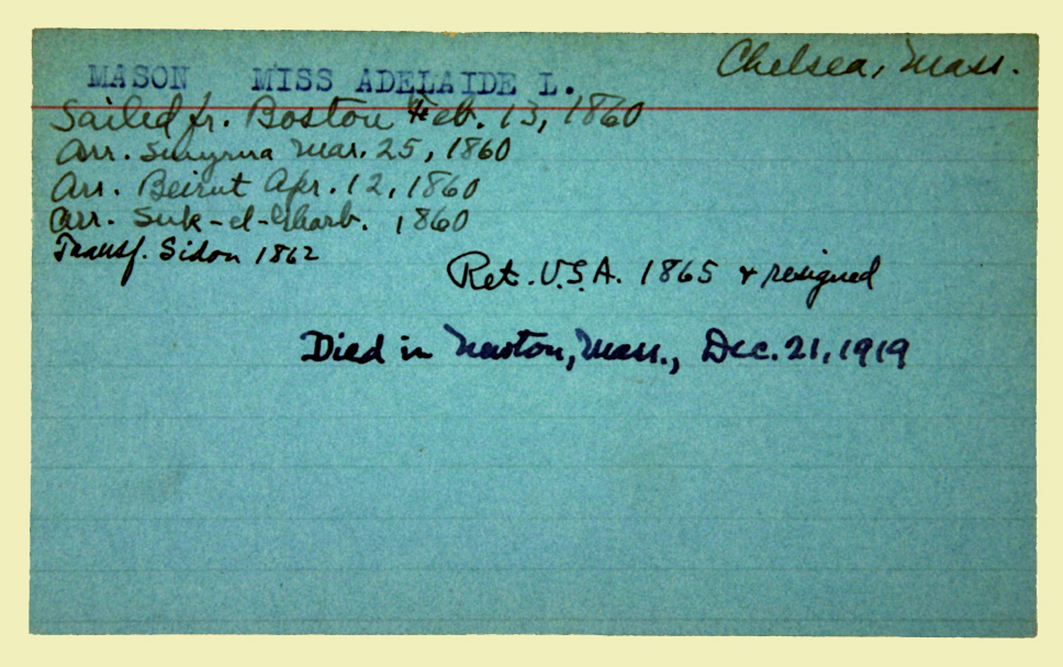 Chelsea, Mass.
MASON MISS ADELAIDE L.
Sailed fr. Boston Feb. 13, 1860
Arr. Smyrna Mar. 25, 1860
Arr. Beirut Apr. 12, 1860
Arr. Suk-el-Gharb. 1860
Transf. Sidon 1862
Ret. U.S.A. 1865 & resigned
Died in Newton, Mass., Dec. 21, 1919